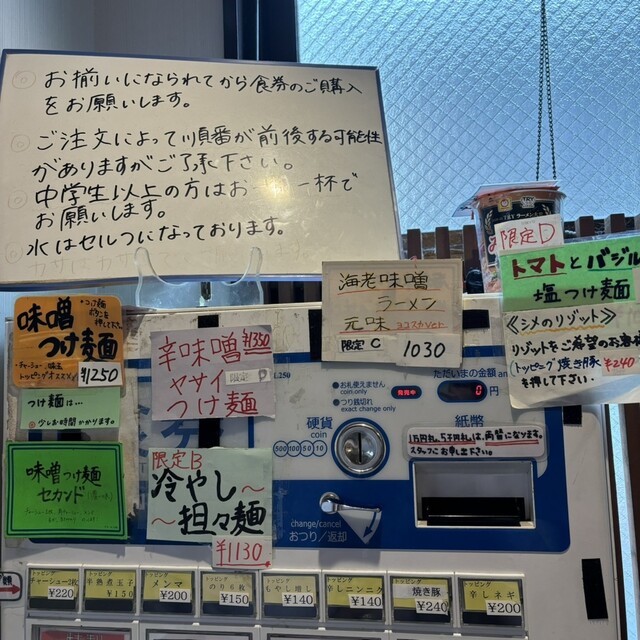 お揃いになられてから食券のご購入
をお願いします。
ご注文によって順番が前後する可能性
がありますがご了承下さい。
中学生以上の方はお一杯で
お願いします。
水はセルフになっております。
味噌
つけ麺
トッピングオススメ
¥1250
つけ麺は…
少しお時間かかります。
味噌つけ麺
セカンド
辛味噌 ¥1350
ヤサイ 限定D
つけ麺
限定B
冷やし〜
〜担々麺
¥1130
海老味噌
ラーメン
元味 ヨコスカver
限定C 1030
限定D
トマトとバジル
塩つけ麺
≪シメのリゾット≫
リゾットをご希望のお客様
(トッピング焼き豚 ¥240
を押して下さい。
1.250
お札使えません
coin only
つり銭切れ
exact change only
発売中
ただいまの金額
0 円
硬貨
coin
500 100 50 10
紙幣
1万円札、5千円札は、両替になります。
スタッフにお申し出下さい。
change/cancel
おつり/返却
トッピング
チャーシュー2枚
¥220
トッピング
半熟煮玉子
¥150
トッピング
メンマ
¥200
トッピング
のり6枚
¥150
トッピング
もやし増し
¥140
トッピング
辛しニンニク
¥140
トッピング
焼き豚
¥240
トッピング
辛しネギ
¥200